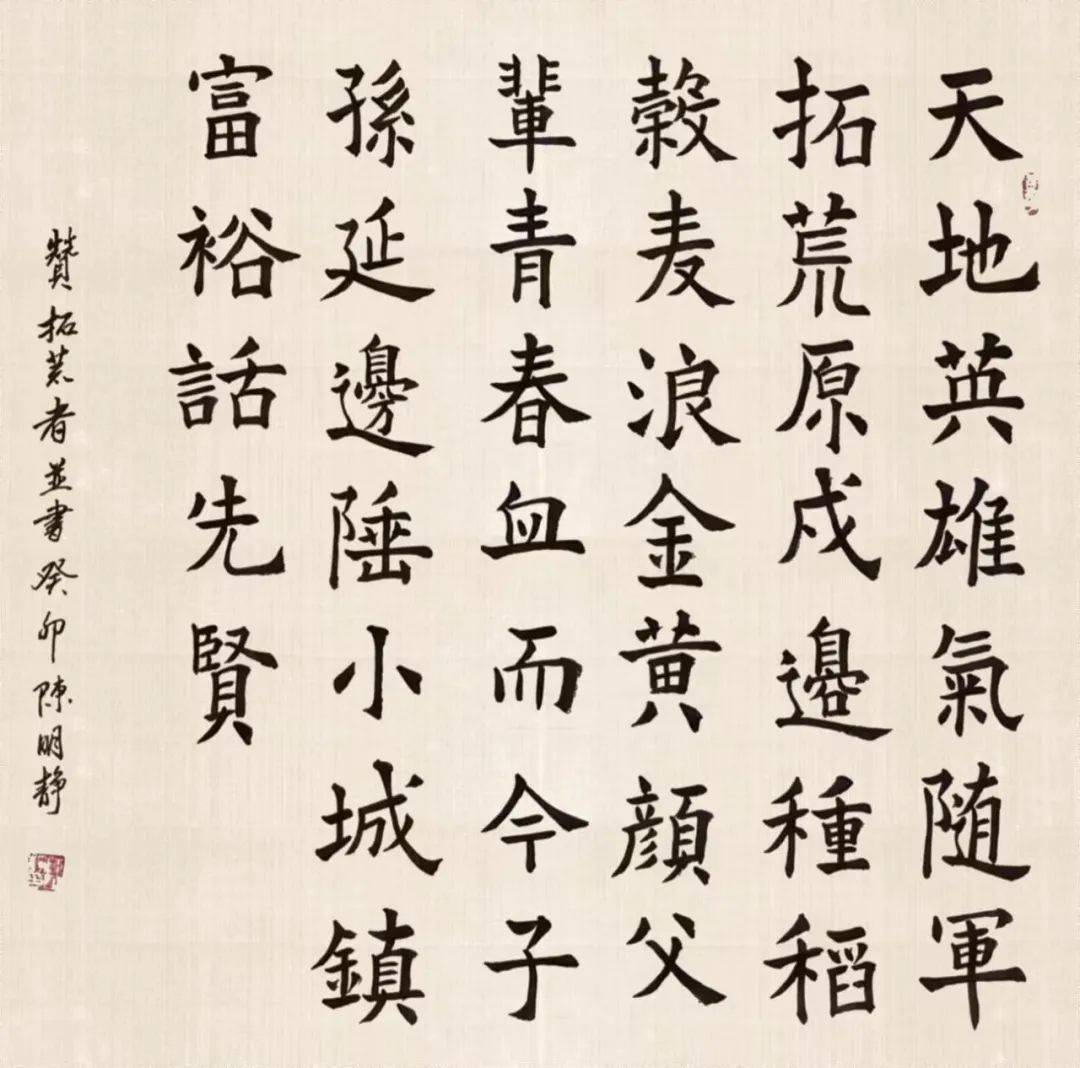 天地英雄氣随軍
拓荒原戍邊種稻
穀麦浪金黄顔父
輩青春血而今子
孫延邊陲小城鎮
富裕話先賢
贊拓荒者並書癸卯陳明静